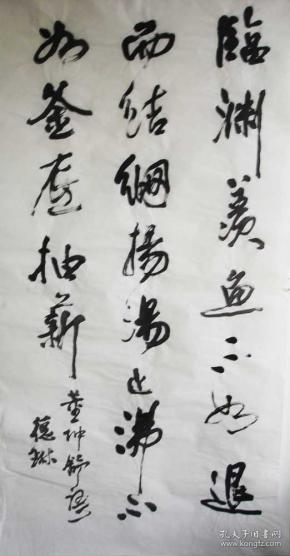 臨渊羡鱼不如退
而結網揚湯止沸不
如釜底抽薪
董仲舒语
孔夫子旧书网